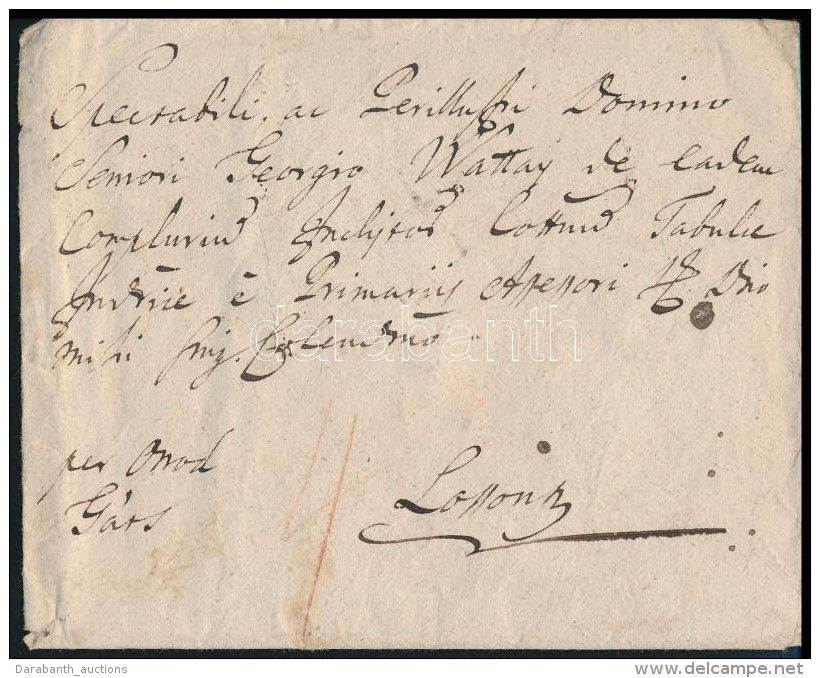 Spectabili ac Perillustri Domino
Seniori Georgio Wattay de eadem
Complurium Inclytor Cottuum Tabulae
Judriae è Primariis Assessori Dno
mihi Colendmo
per
Gács
Lossontz
darabanth
Darabanth_auctions
www.delcampe.net